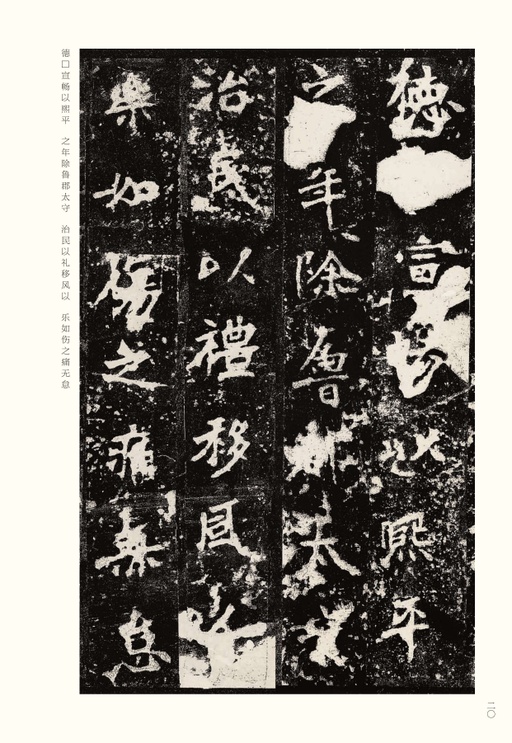 德□宣畅以熙平　之年除鲁郡太守　治民以礼移风以　乐如伤之痛无怠
德宣暢以熙平
之年除魯郡太守
治民以禮移風以
樂如傷之痛無怠
二〇